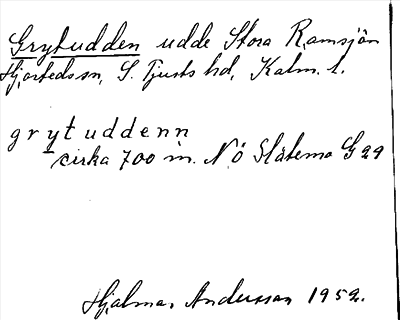 Grytudden udde Stora Ramsjön
Hjorteds sn, S. Tjusts hd, Kalm. l.
grytuddenn
cirka 700 m. N.Ö Slätemo G 29
Hjalmar Andersson 1952.